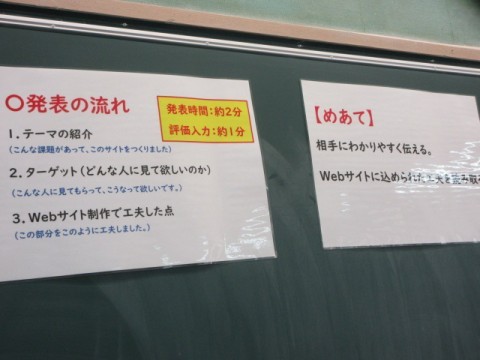 〇発表の流れ
発表時間:約2分
評価入力:約1分
1.テーマの紹介
(こんな課題があって、このサイトをつくりました)
2.ターゲット(どんな人に見て欲しいのか)
(こんな人に見てもらって、こうなって欲しいです。)
3.Webサイト制作で工夫した点
(この部分をこのように工夫しました。)
【めあて】
相手にわかりやすく伝える。
Webサイトに込められた工夫を読み取